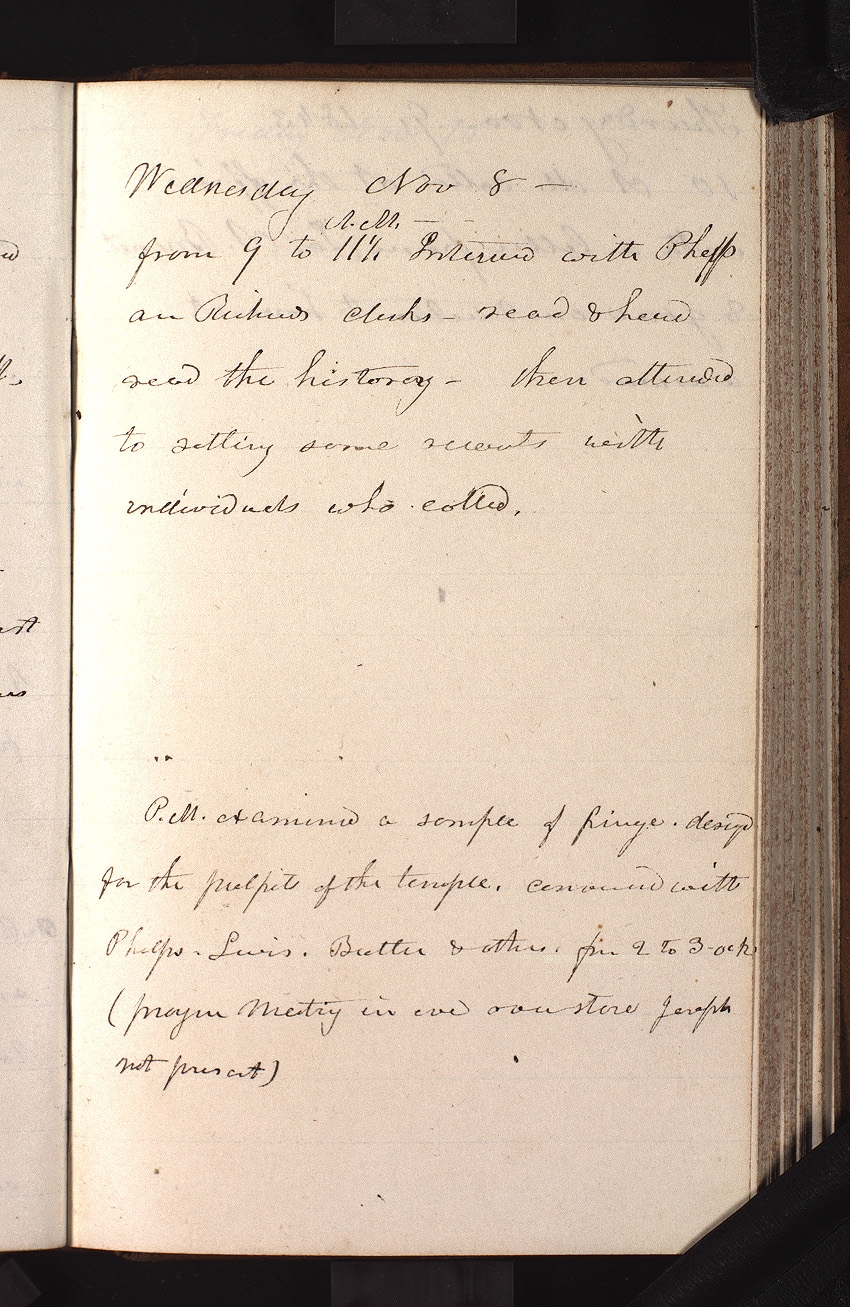 Wednesday Nov 8 —
A.M. —
from 9 to 11½ Interview with Phelps
an Richards clerks — read & heard
read the history — then attended
to settling some accounts with
individuals who called.
P.M. examined a sample of fringe. design
for the pulpits of the temple. conversed with
Phelps. Lewis. Butler & others. from 2 to 3 ock
(prayer Meeting in eve over store Joseph
not present)